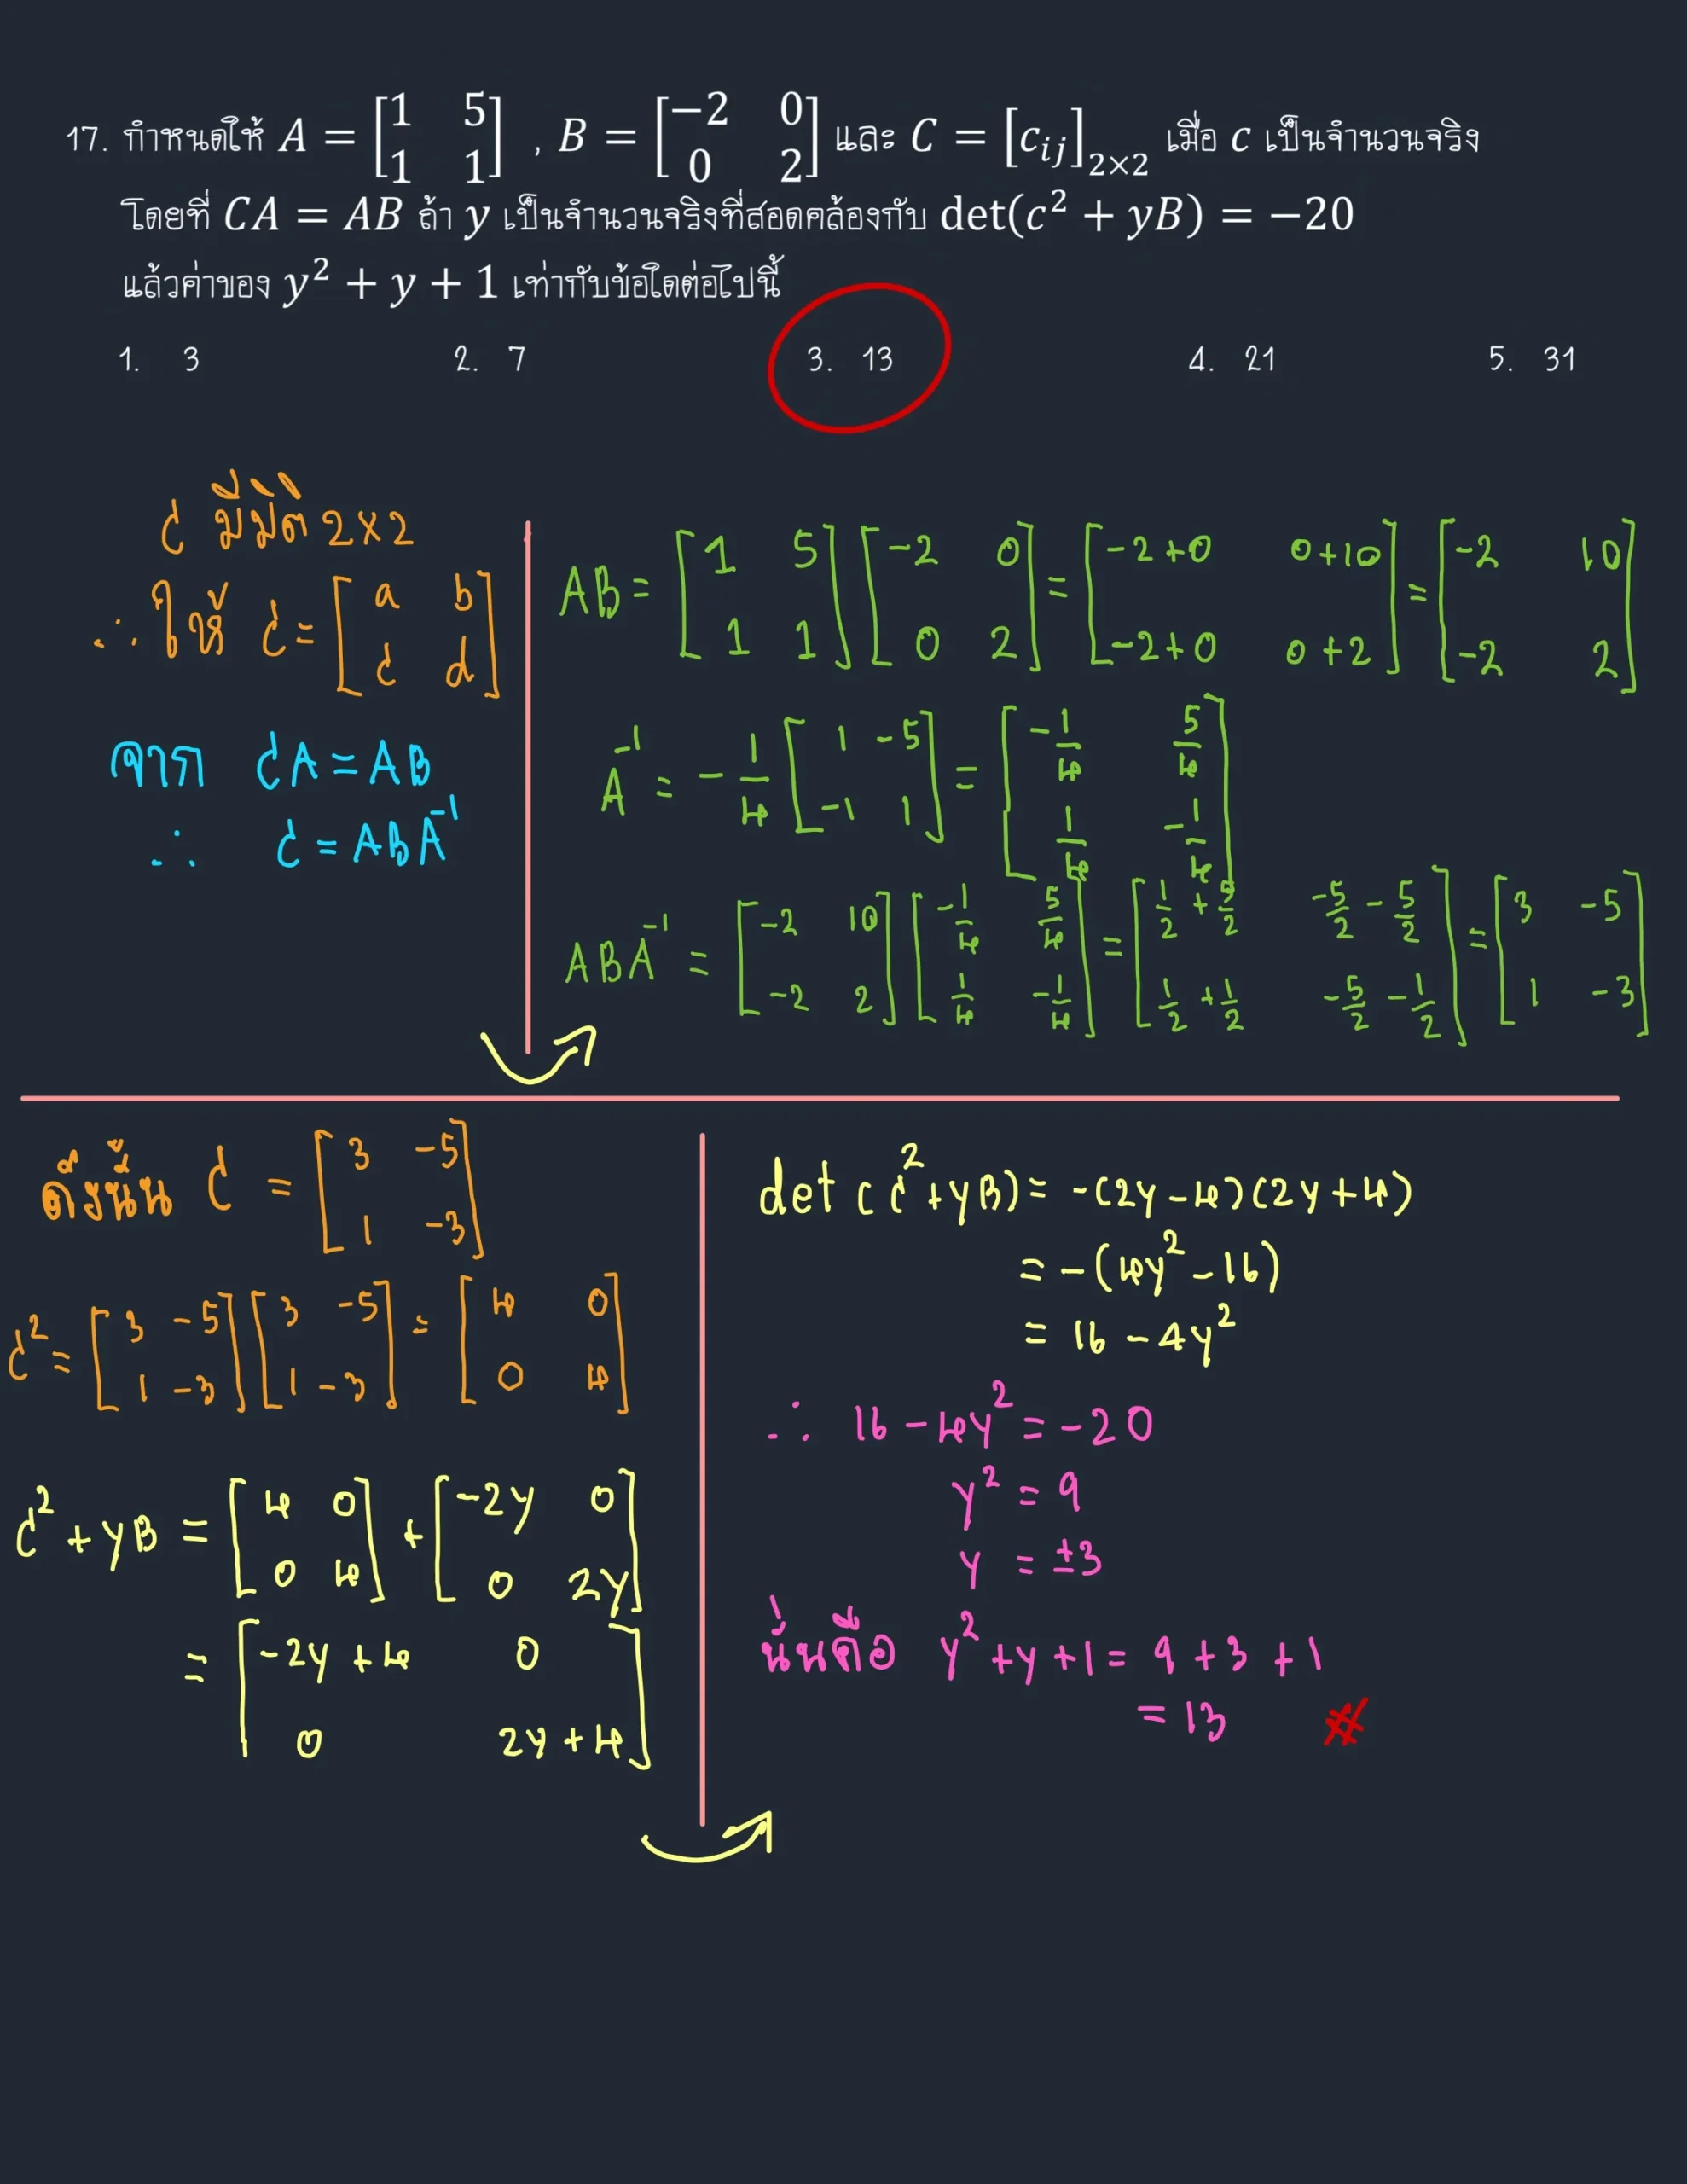 17. กำหนดให้ A = [1 5; 1 1] , B = [−2 0; 0 2] และ C = [c_ij]_2×2 เมื่อ c เป็นจำนวนจริง
โดยที่ CA = AB ถ้า y เป็นจำนวนจริงที่สอดคล้องกับ det(c² + yB) = −20
แล้วค่าของ y² + y + 1 เท่ากับข้อใดต่อไปนี้
1. 3 2. 7 3. 13 4. 21 5. 31
C มีมิติ 2×2
∴ ให้ C = [a b; c d]
จาก CA = AB
∴ C = ABA⁻¹
AB = [1 5; 1 1][-2 0; 0 2] = [-2+0 0+10; -2+0 0+2] = [-2 10; -2 2]
A⁻¹ = -1/4 [1 -5; -1 1] = [-1/4 5/4; 1/4 -1/4]
ABA⁻¹ = [-2 10; -2 2][-1/4 5/4; 1/4 -1/4] = [1/2+5/2 -5/2-5/2; 1/2+1/2 -5/2-1/2] = [3 -5; 1 -3]
ดังนั้น C = [3 -5; 1 -3]
C² = [3 -5; 1 -3][3 -5; 1 -3] = [4 0; 0 4]
C² + yB = [4 0; 0 4] + [-2y 0; 0 2y]
= [-2y+4 0; 0 2y+4]
det(C²+yB) = -(2y-4)(2y+4)
= -(4y²-16)
= 16-4y²
∴ 16-4y² = -20
y² = 9
y = ±3
นั่นคือ y²+y+1 = 9+3+1
= 13 #